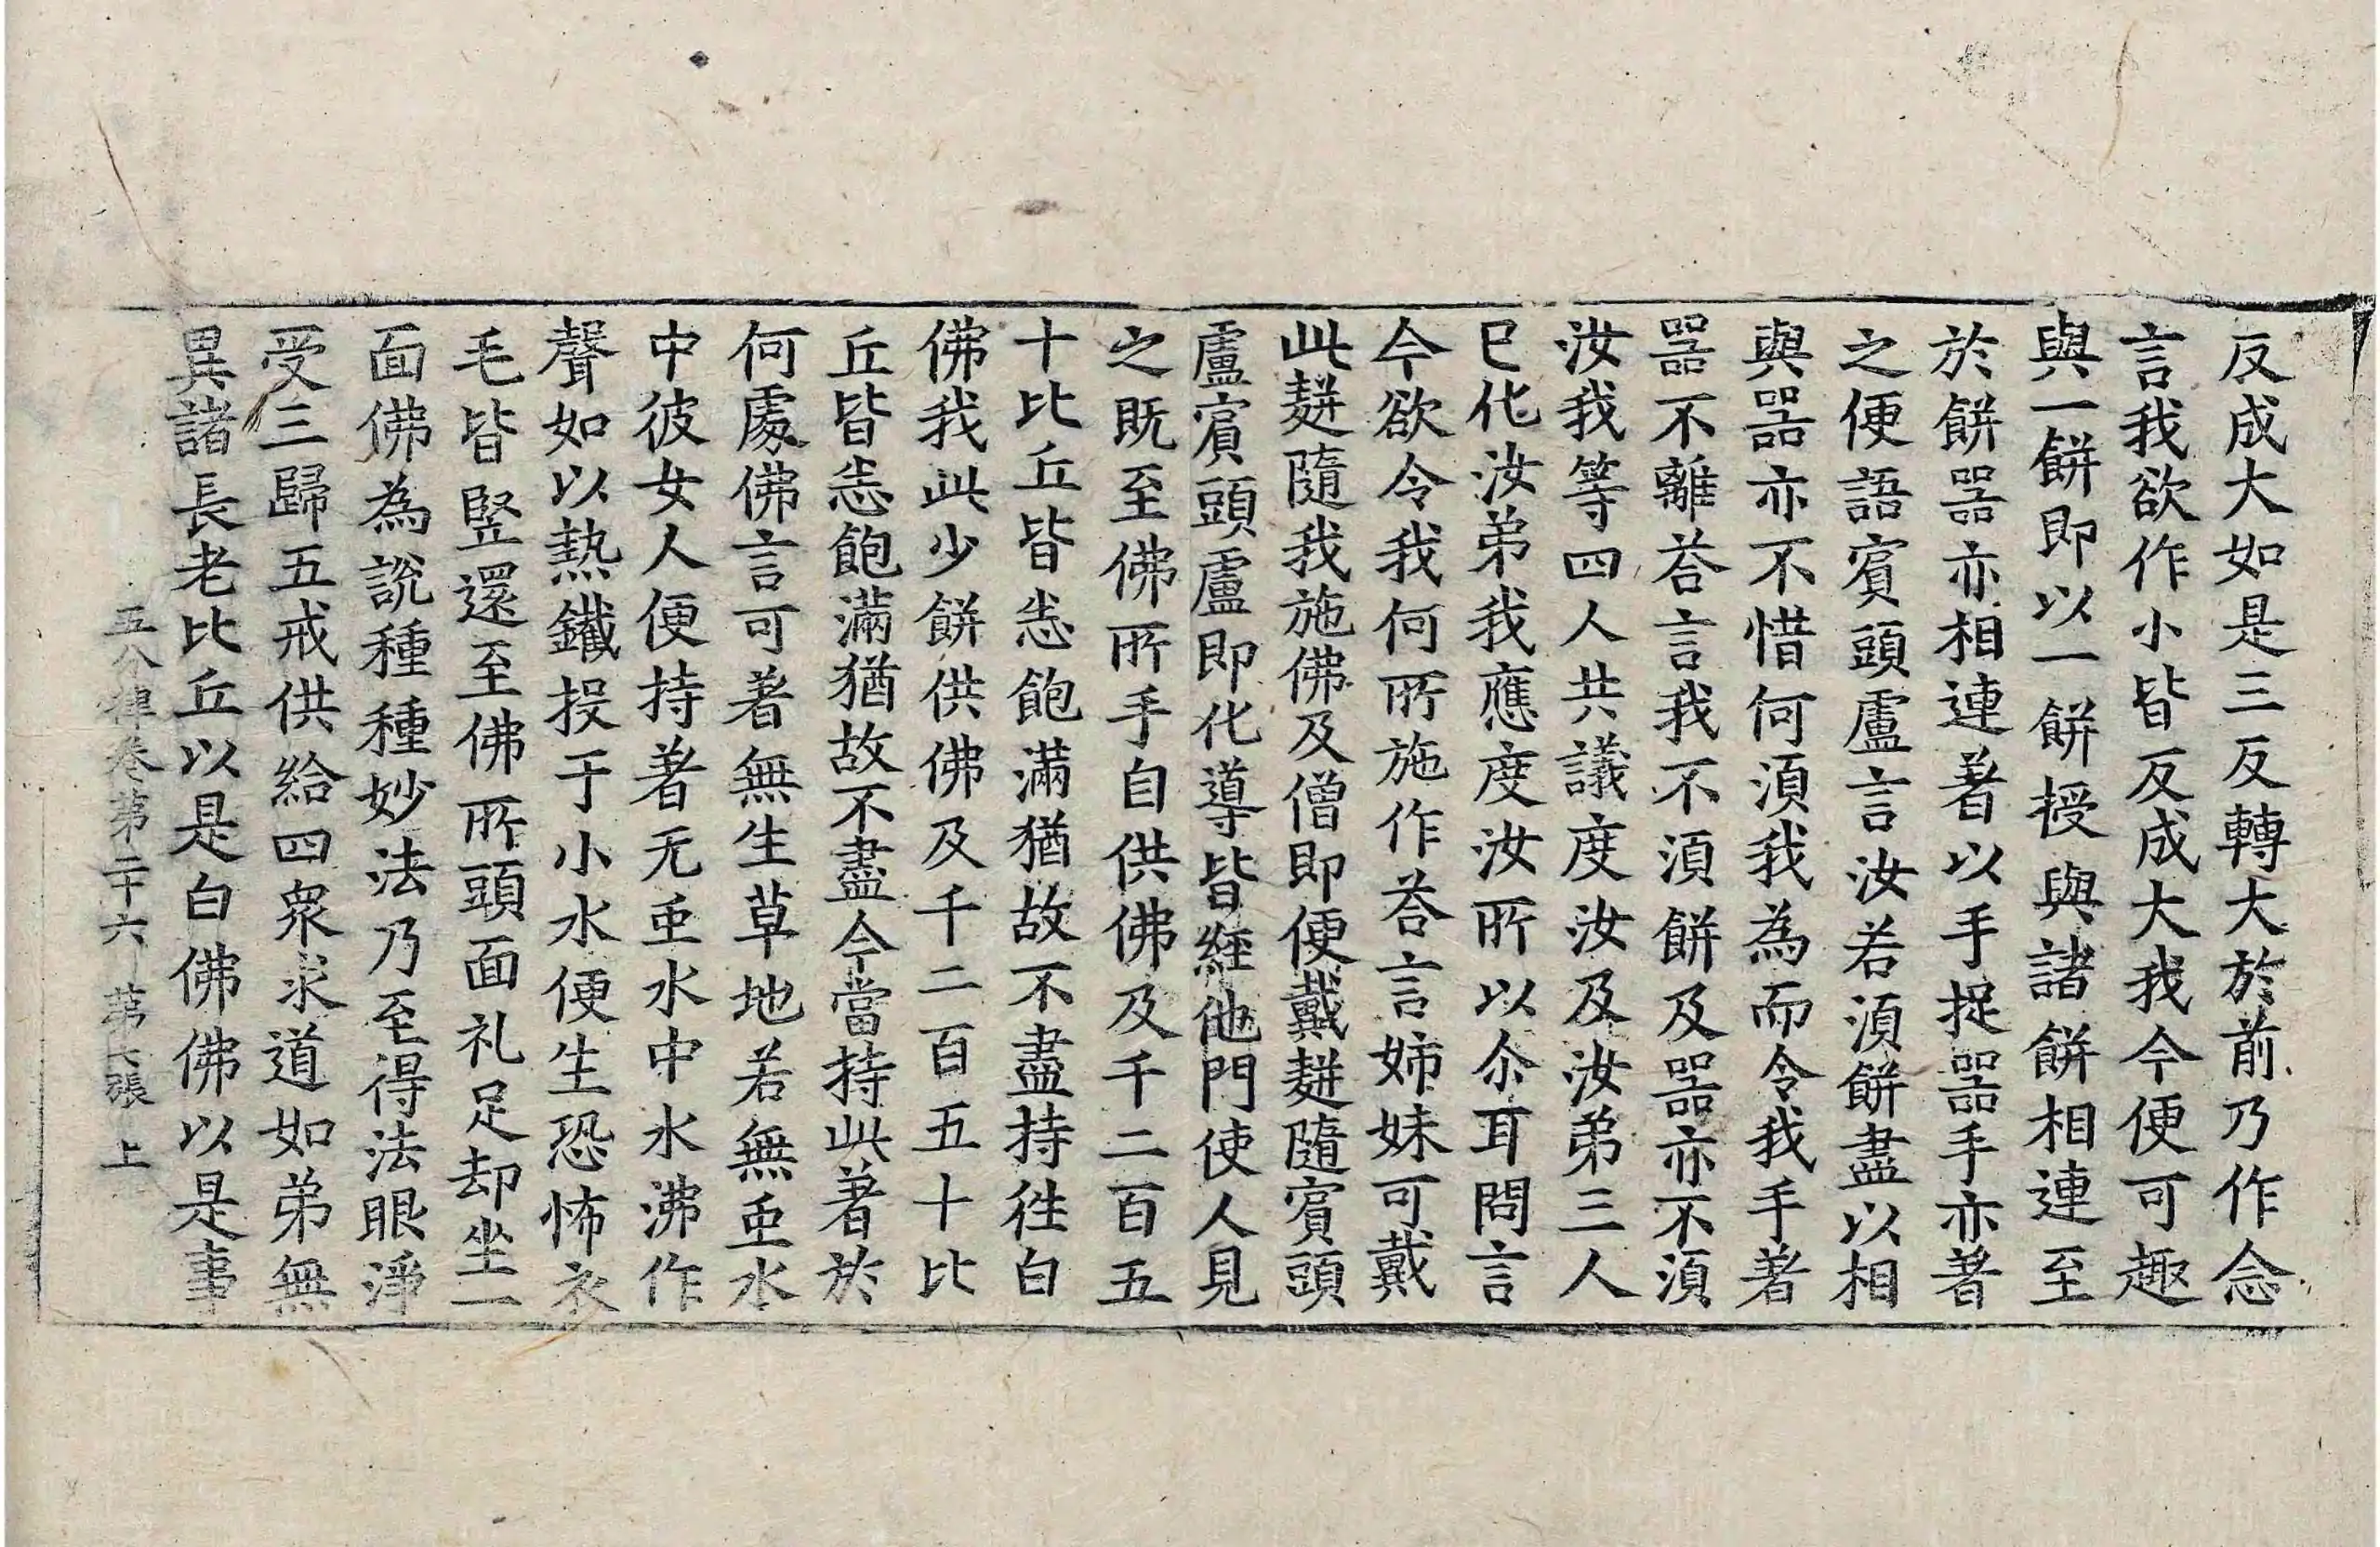 反成大如是三反轉大於前乃作念
言我欲作小皆反成大我今便可趣
與一餅即以一餅授與諸餅相連至
於餅器亦相連著以手捉器手亦著
之便語賔頭盧言汝若湏餅盡以相
與器亦不惜何湏我為而令我手著
器不離荅言我不湏餅及器亦不湏
汝我等四人共議度汝及汝弟三人
已化汝弟我應度汝所以尒耳問言
今欲令我何所施作荅言姉妹可戴
此䴵隨我施佛及僧即便戴䴵隨賔頭
盧賔頭盧即化導皆經他門使人見
之既至佛所手自供佛及千二百五
十比丘皆悉飽滿猶故不盡持徃白
佛我此少餅供佛及千二百五十比
丘皆悉飽滿猶故不盡今當持此著於
何處佛言可著無生草地若無䖝水
中彼女人便持著无䖝水中水沸作
聲如以熱鐵投于小水便生恐怖衣
毛皆竪還至佛所頭面礼足却坐一
面佛為說種種妙法乃至得法眼淨
受三歸五戒供給四衆求道如弟無
異諸長老比丘以是白佛佛以是事
五分律卷第二十六 第七張 上